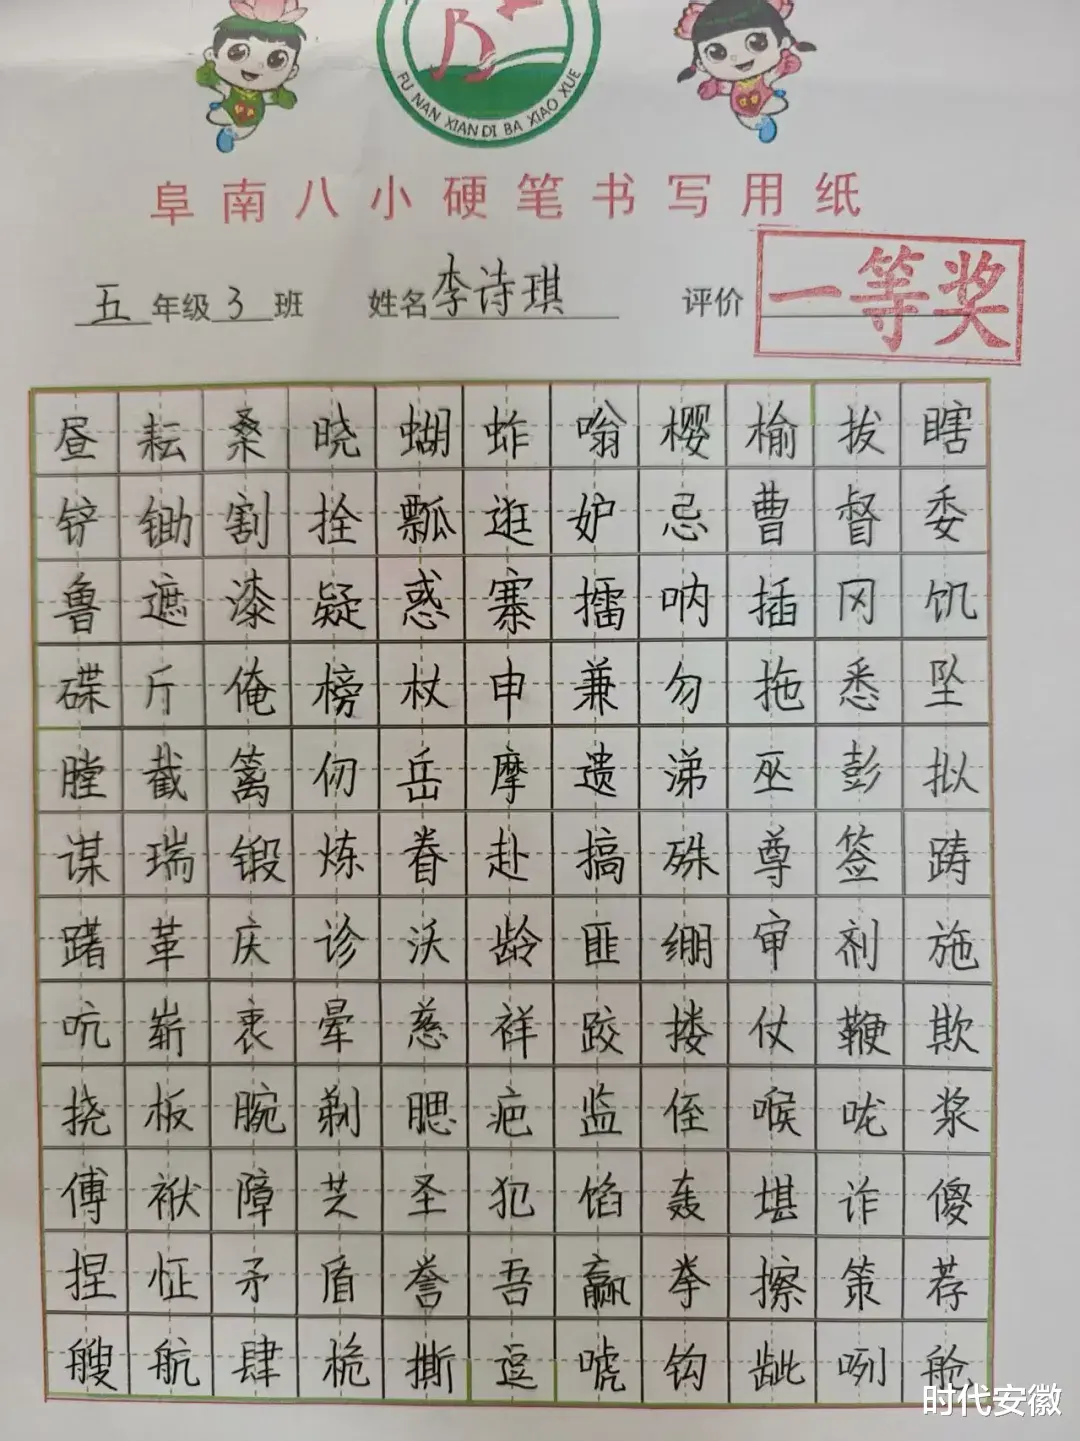 FU NAN XIAN DI BA XIAO XUE
阜南八小硬笔书写用纸
五年级3班 姓名李诗琪 评价 一等奖
昼耘桑晓蝴蚱嗡樱榆拔瞎
铲锄割拴瓢逛妒忌曹督委
鲁遮漆疑惑寨擂呐插冈饥
碟斤俺榜杖申兼勿拖悉坠
膛截篱仞岳摩遗涕巫彭拟
谋瑞锻炼眷赴搞殊尊签踌
躇革庆诊沃龄匪绷审剂施
吭崭衷晕慈祥跤搂仗鞭欺
挠板腕剃腮疤监侄喉咙浆
傅袱障芝圣犯馅轰堪诈傻
捏怔矛盾誉吾赢拳擦策荐
艘航肆桅撕逗唬钩龇咧舱
时代安徽